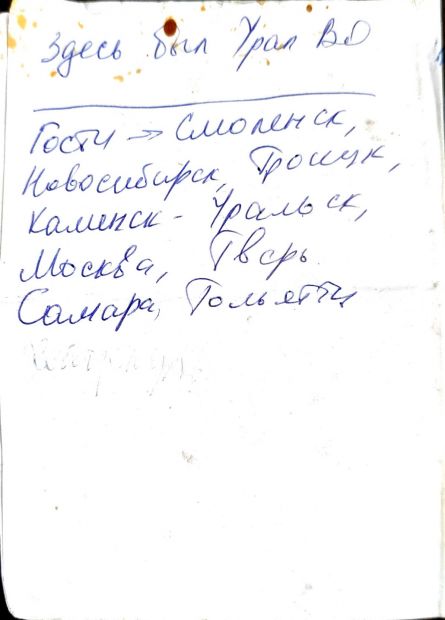 Здесь был Урал ВО
Гости → Смоленск,
Новосибирск, Троицк,
Каменск - Уральск,
Москва, Тверь
Самара, Тольятти